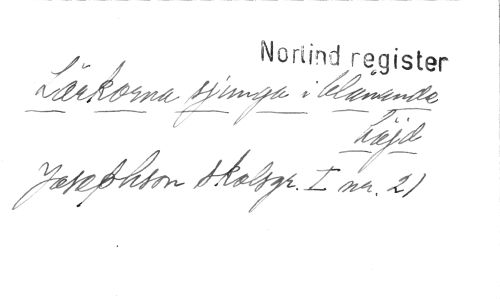 Norlind register
Lärkorna sjunga i blånande
höjd
Josephson Skolsgr. I nr. 21